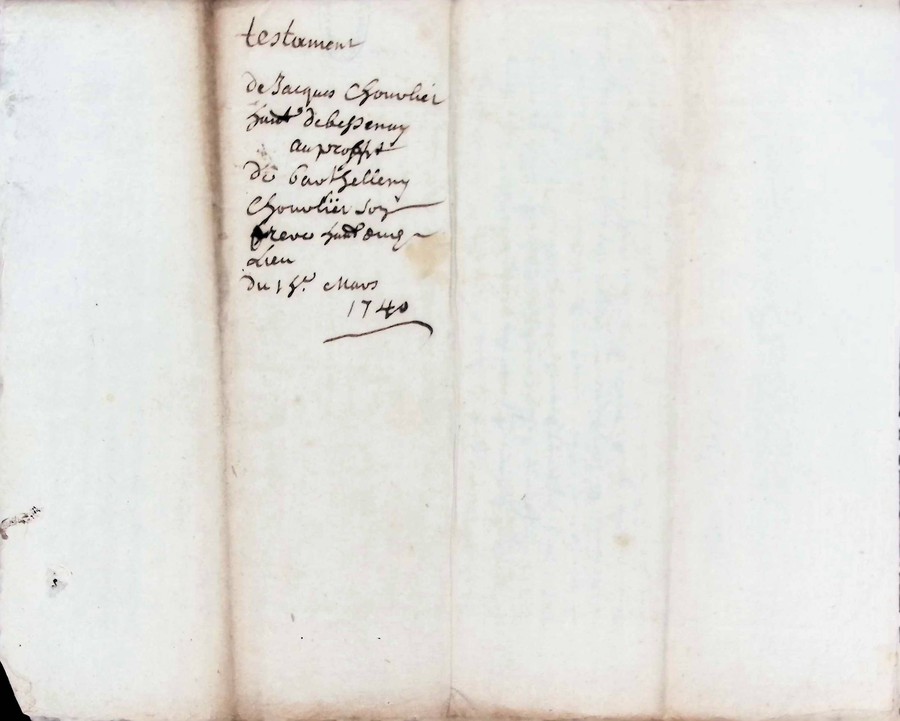 testament
de Jacques Chouvliér
hant de bessenay
au proffit
de barthellemy
Chouvliér son
frere hant aud
Lieu
du 15e. Mars
1740